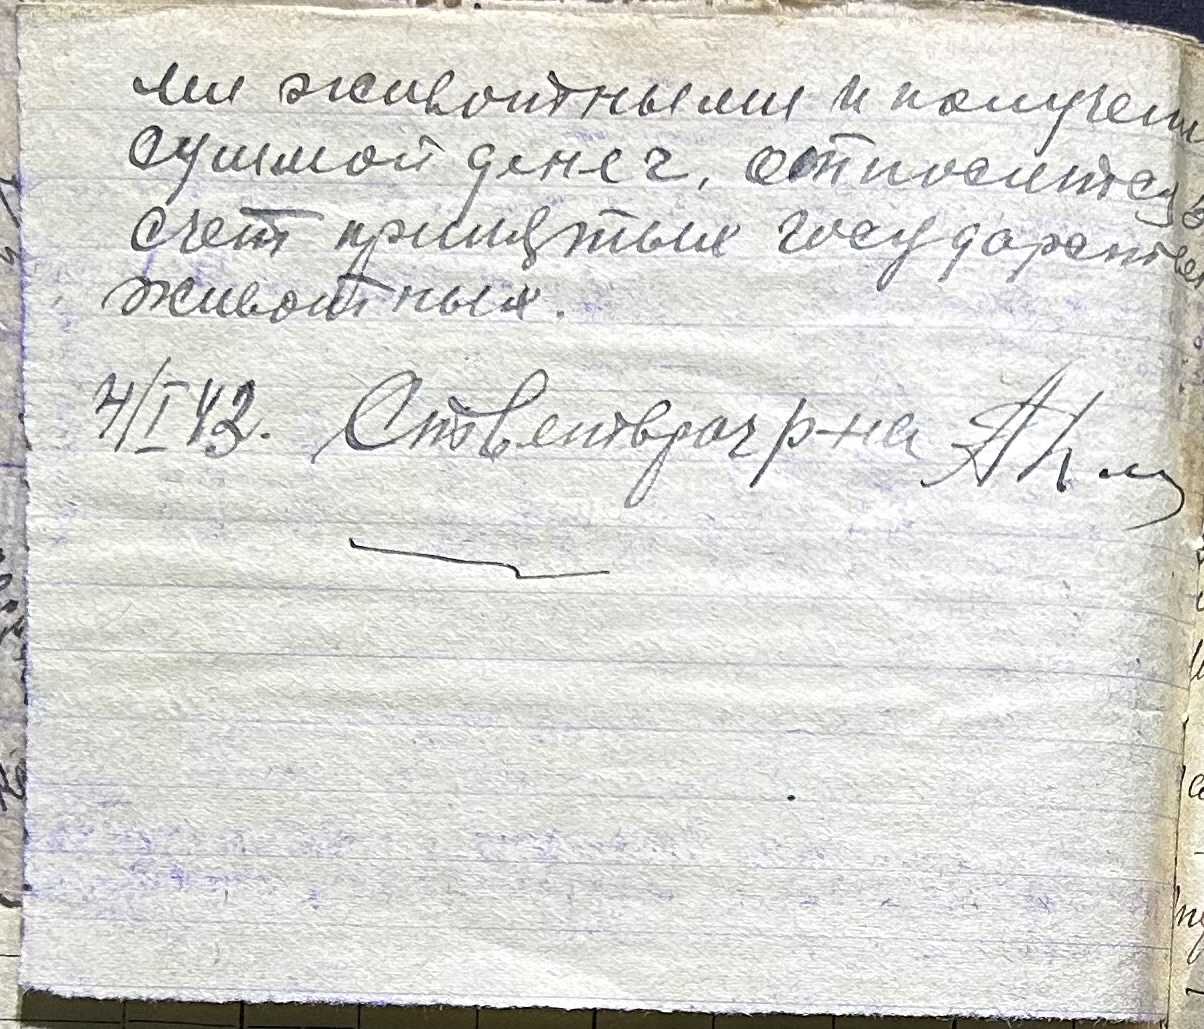 ми животными и получен
суммой денег, относится
счет принятых государстве
животных.
4/I 43. Ствентврач р-на